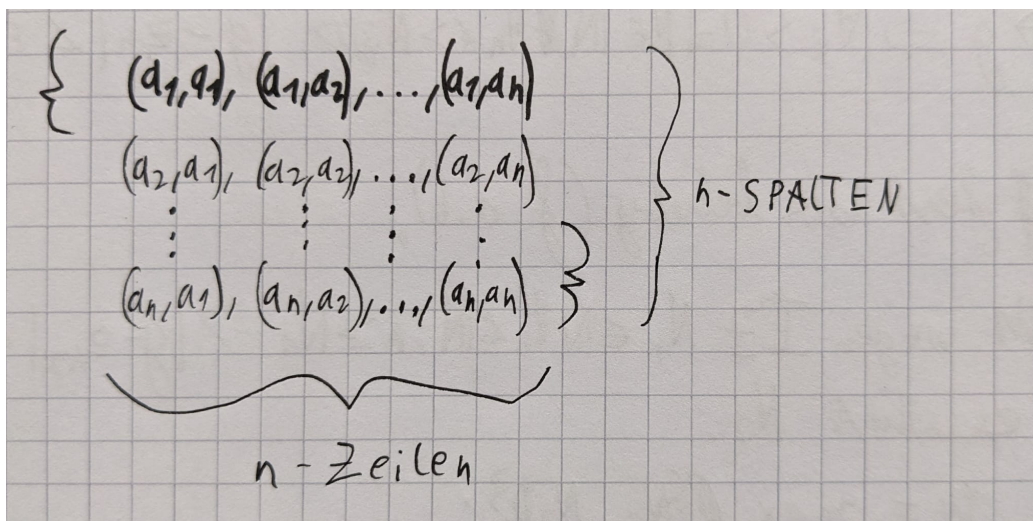 { (a1,a1), (a1,a2), ..., (a1,an)
(a2,a1), (a2,a2), ..., (a2,an)
(an,a1), (an,a2), ..., (an,an) }
n-SPALTEN
n-Zeilen